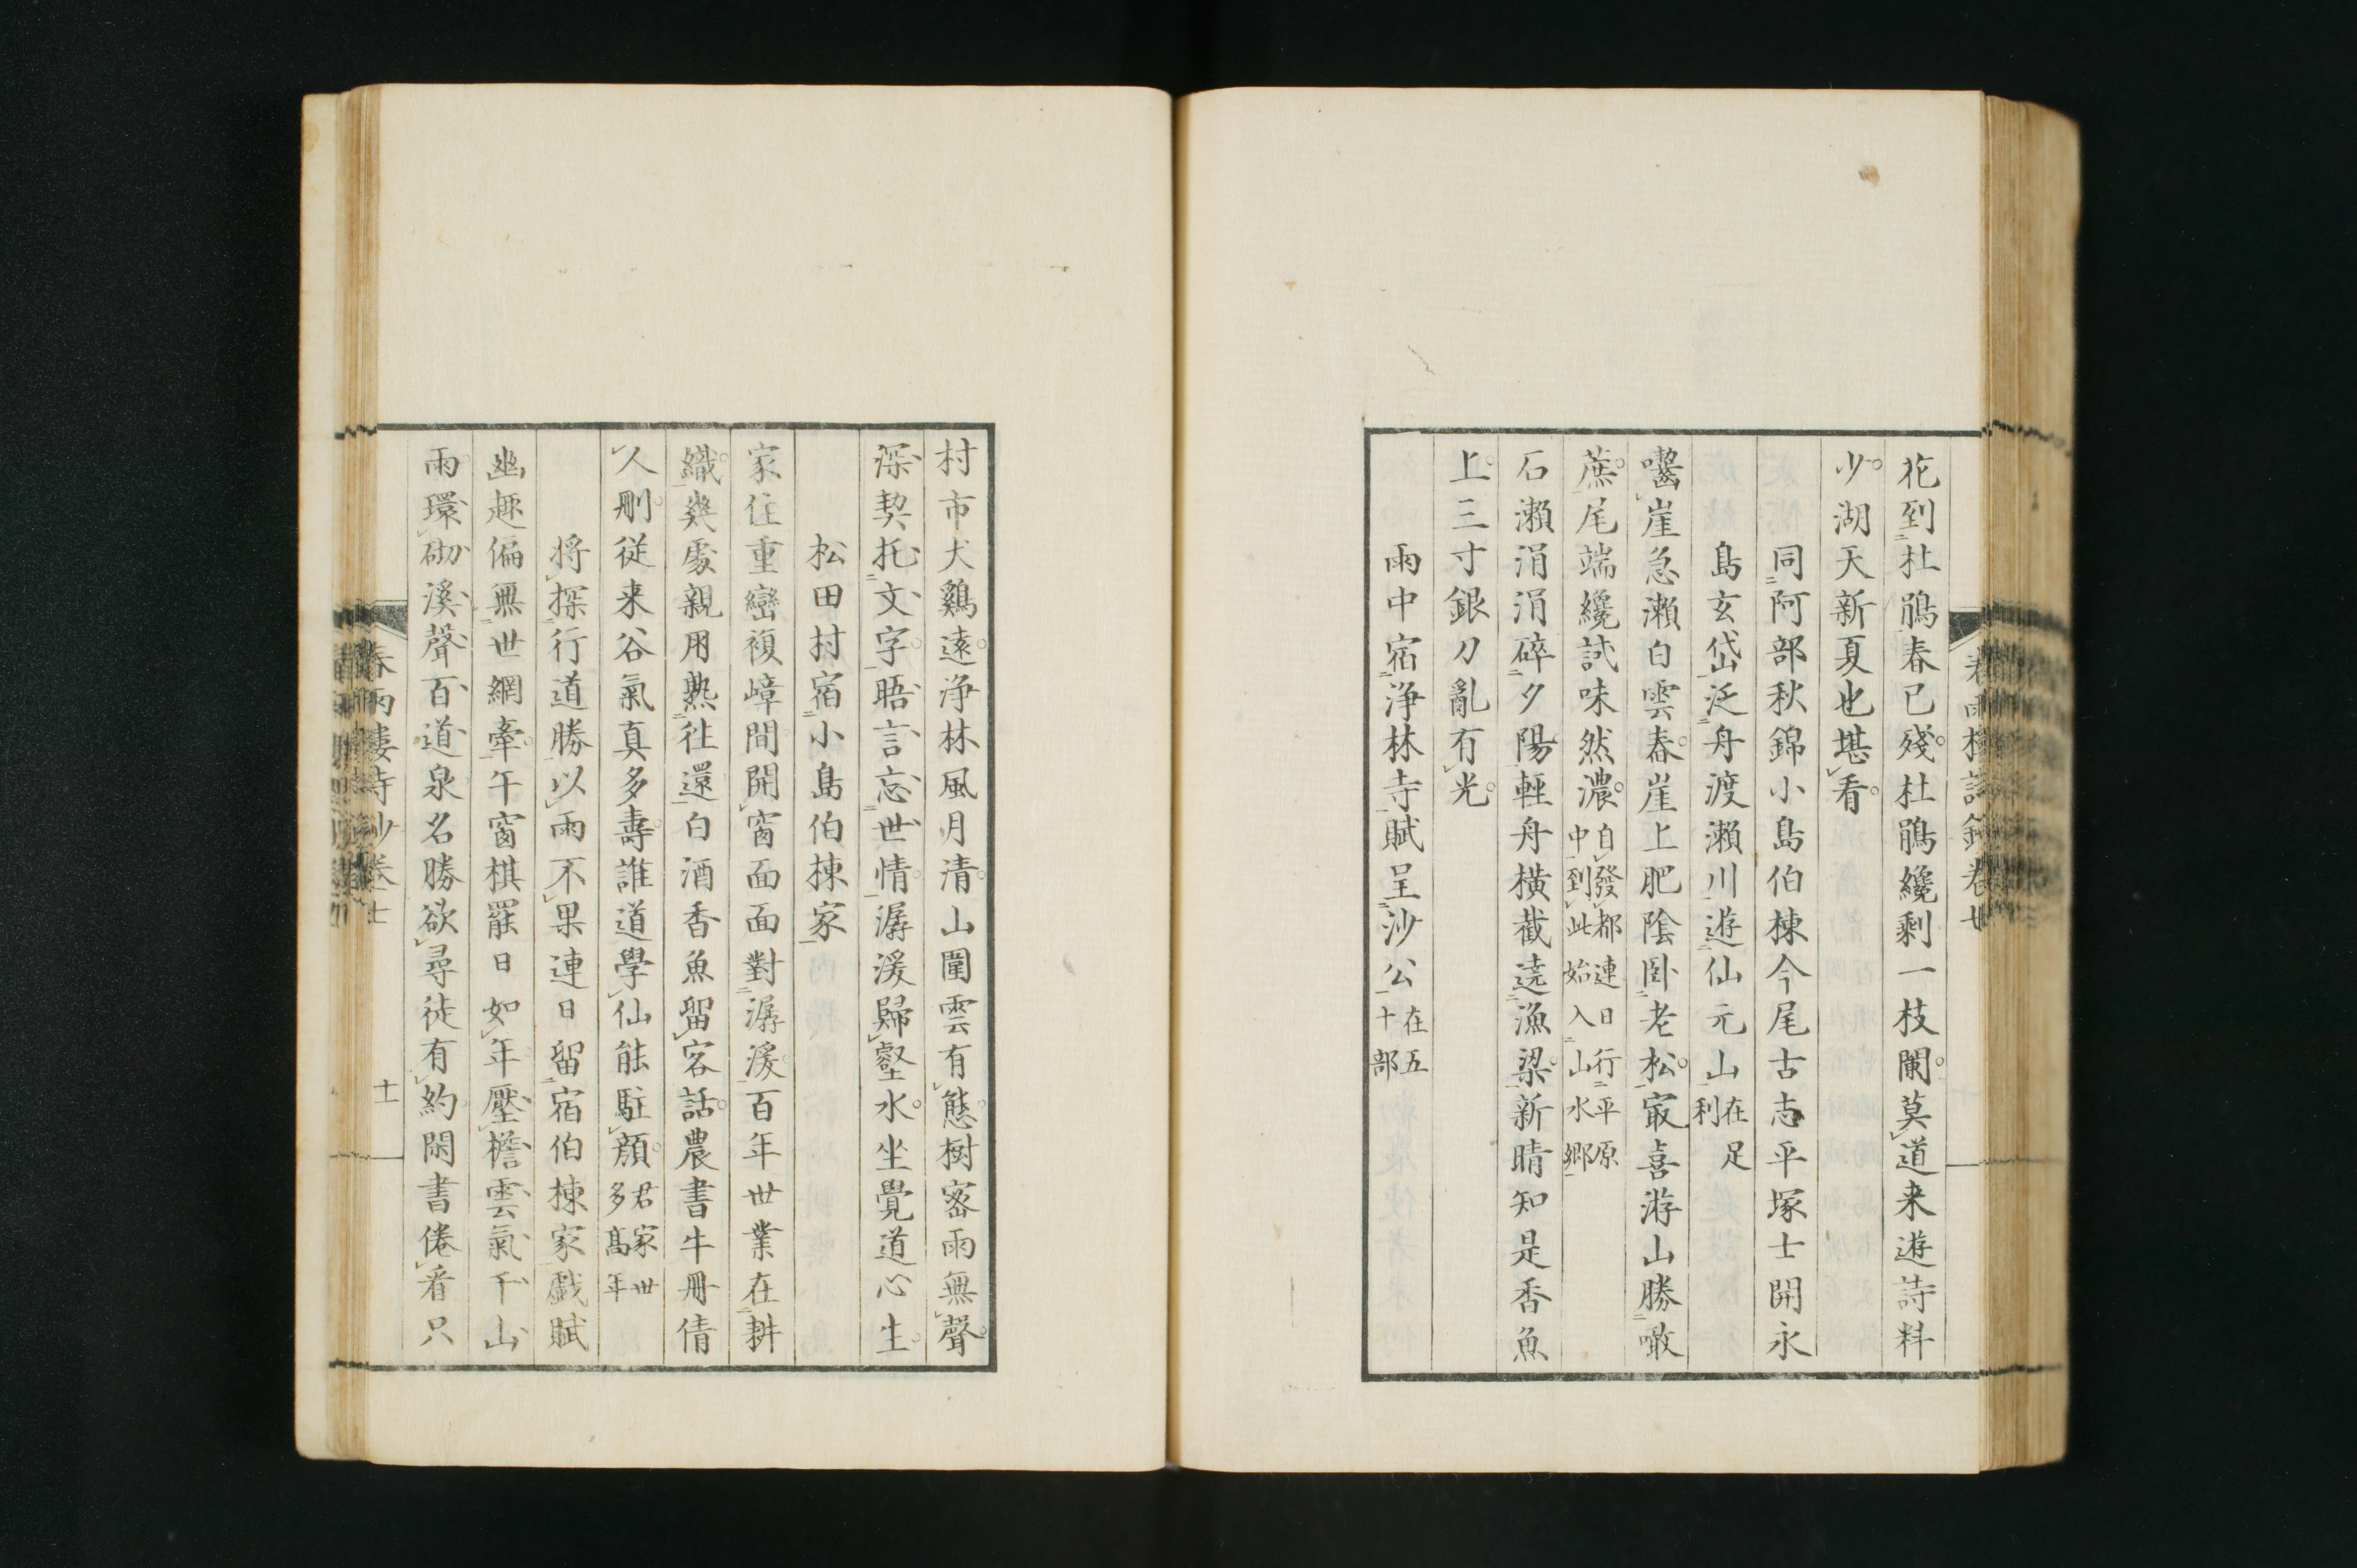 花到杜鵑春已殘杜鵑纔剩一枝闌莫道来遊詩料
少湖天新夏也堪看
同阿部秋錦小島伯棟今尾古志平塚士開永
島玄岱泛舟渡瀬川遊仙元山在足利
嚙崖急瀬白雲舂崖上肥陰卧老松㝡喜游山勝噉
蔗尾端纔試味然濃自發都連日行平原中到此始入山水郷
石瀬涓涓碎夕陽輕舟橫截遶漁梁新晴知是香魚
上三寸銀刀亂有光
雨中宿浄林寺賦呈沙公在五十部
村市犬鷄遠浄林風月清山圍雲有態樹密雨無聲
深契托文字晤言忘世情潺湲歸壑水坐覺道心生
松田村宿小島伯棟家
家住重巒複嶂間開窗面面對潺湲百年世業在耕
織幾處親用熟往還白酒香魚留客話農書牛冊倩
人刪従来谷氣真多壽誰道學仙能駐顔君家世多髙年
将探行道勝以雨不果連日留宿伯棟家戯賦
幽趣偏無世網牽午窗棋罷日如年壓檐雲氣千山
雨環砌溪聲百道泉名勝欲尋徒有約閑書倦看只
春雨樓詩鈔卷七
十一